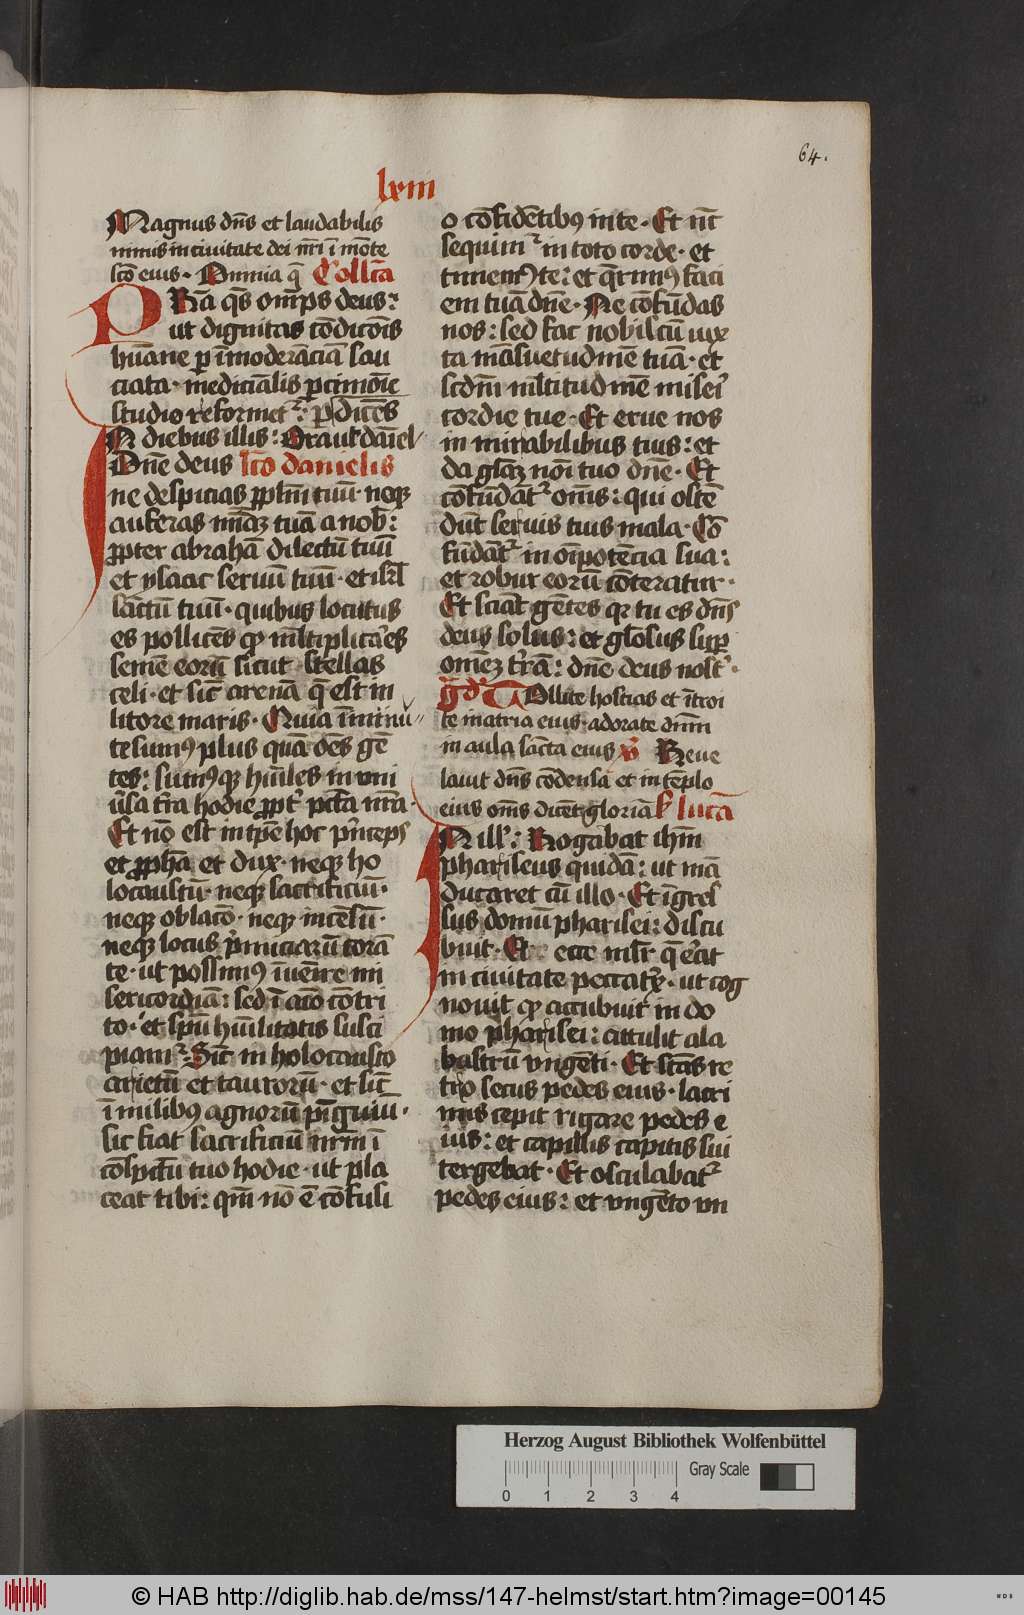 64.
lxiii
Magnus dn̄s et laudabilis
nimus in ciuitate dei nr̄i ī mōte
sc̄o eius · Omnia q̄ Coll̄cta
PRā q̄s om̄ps deus :
ut dignitas cōdicōis
hūane p īmoderāciā sau
ciata · medicīalis pcimōie
studio reformet᷑ : p dīces
IN diebus illis : Orauit dāiel
Dn̄e deus lc̄o danielis
ne despicias pplm̄ tuū · neqꝫ
auferas mīā tuā a nob̄ :
ꝓpter abrahā dilectū tuū
et ysaac seruū tuū · et isrl̄
sāctū tuū · quibus locutus
es pollicēs qꝫ ml̄tiplicaꝰes
semē eorū sicut stellas
celi · et sic̄ arenā q̄ est in
litore maris · Quia īminu
te sumꝰ plus quā oēs gē
tes : sumꝰqꝫ hūiles in vni
ūsa tr̄a hodie ꝓpt᷑ pctā nr̄a ·
Et nō est in tp̄e hoc pͥnceps
et ꝓphā et dux · neqꝫ ho
locaustū · neqꝫ sacrificiū ·
neqꝫ oblacō · neqꝫ incēsū ·
neqꝫ locus pͥmiciarū corā
te · ut possimꝰ īuēire mi
sericordiā : sed ī aīo cōtri
to · et spū hūilitatis susci
piam᷑ : Sic̄ in holocausto
arietū et taurorū · et sic̄
ī milibꝰ agnorū pīguiū ·
sic fiat sacrificiū nrm̄ ī
cōspc̄tu tuo hodie · ut pla
ceat tibi : qm̄ nō ē cōfusi
o cōfidētibꝰ in te · Et nūc
sequim᷑ in toto corde · et
timemꝰ te : et q̄rimꝰ faci
em tuā dn̄e · Ne cōfūdas
nos : sed fac nobiscū iux
ta māsuetudinē tuā · et
scdm̄ ml̄titudinē miseͥ
cordie tue · Et erue nos
in mirabilibus tuis : et
da gl̄oꝫ noī tuo dn̄e · Et
cōfūdāt᷑ om̄s : qui ostē
dūt seruis tuis mala · Cō
fūdāt᷑ in oīpotēcia sua :
et robur eorū cōteratur ·
Et sciāt gētes qꝛ tu es dn̄s
deus solus : et gl̄osus sup
omēꝫ tr̄ā : dn̄e deus nost᷑ ·
Gd᷑ Tollite hostias et ītroi
te in atria eius · adorate dnm̄
in aula sācta eius v̄ Reue
lauit dn̄s cōdensa et in tēplo
eius om̄s dicēt gloriā S lucā
IN ill᷑ : Rogabat ihm̄
phariseus quidā : ut mā
ducaret cū illo · Et īgres
sus domū pharisei : discu
buit · Et ecce mlr̄ q̄ eͣt
in ciuitate peccatͥx · ut cog
nouit qꝫ accubuit in do
mo pharisei : attulit ala
bastrū vngēti · Et stās re
tro secus pedes eius · lacri
mis cepit rigare pedes e
ius : et capillis capitis sui
tergebat · Et osculabat᷑
pedes eius : et vngēto vn
Herzog August Bibliothek Wolfenbüttel
Gray Scale
0 1 2 3 4
© HAB http://diglib.hab.de/mss/147-helmst/start.htm?image=00145